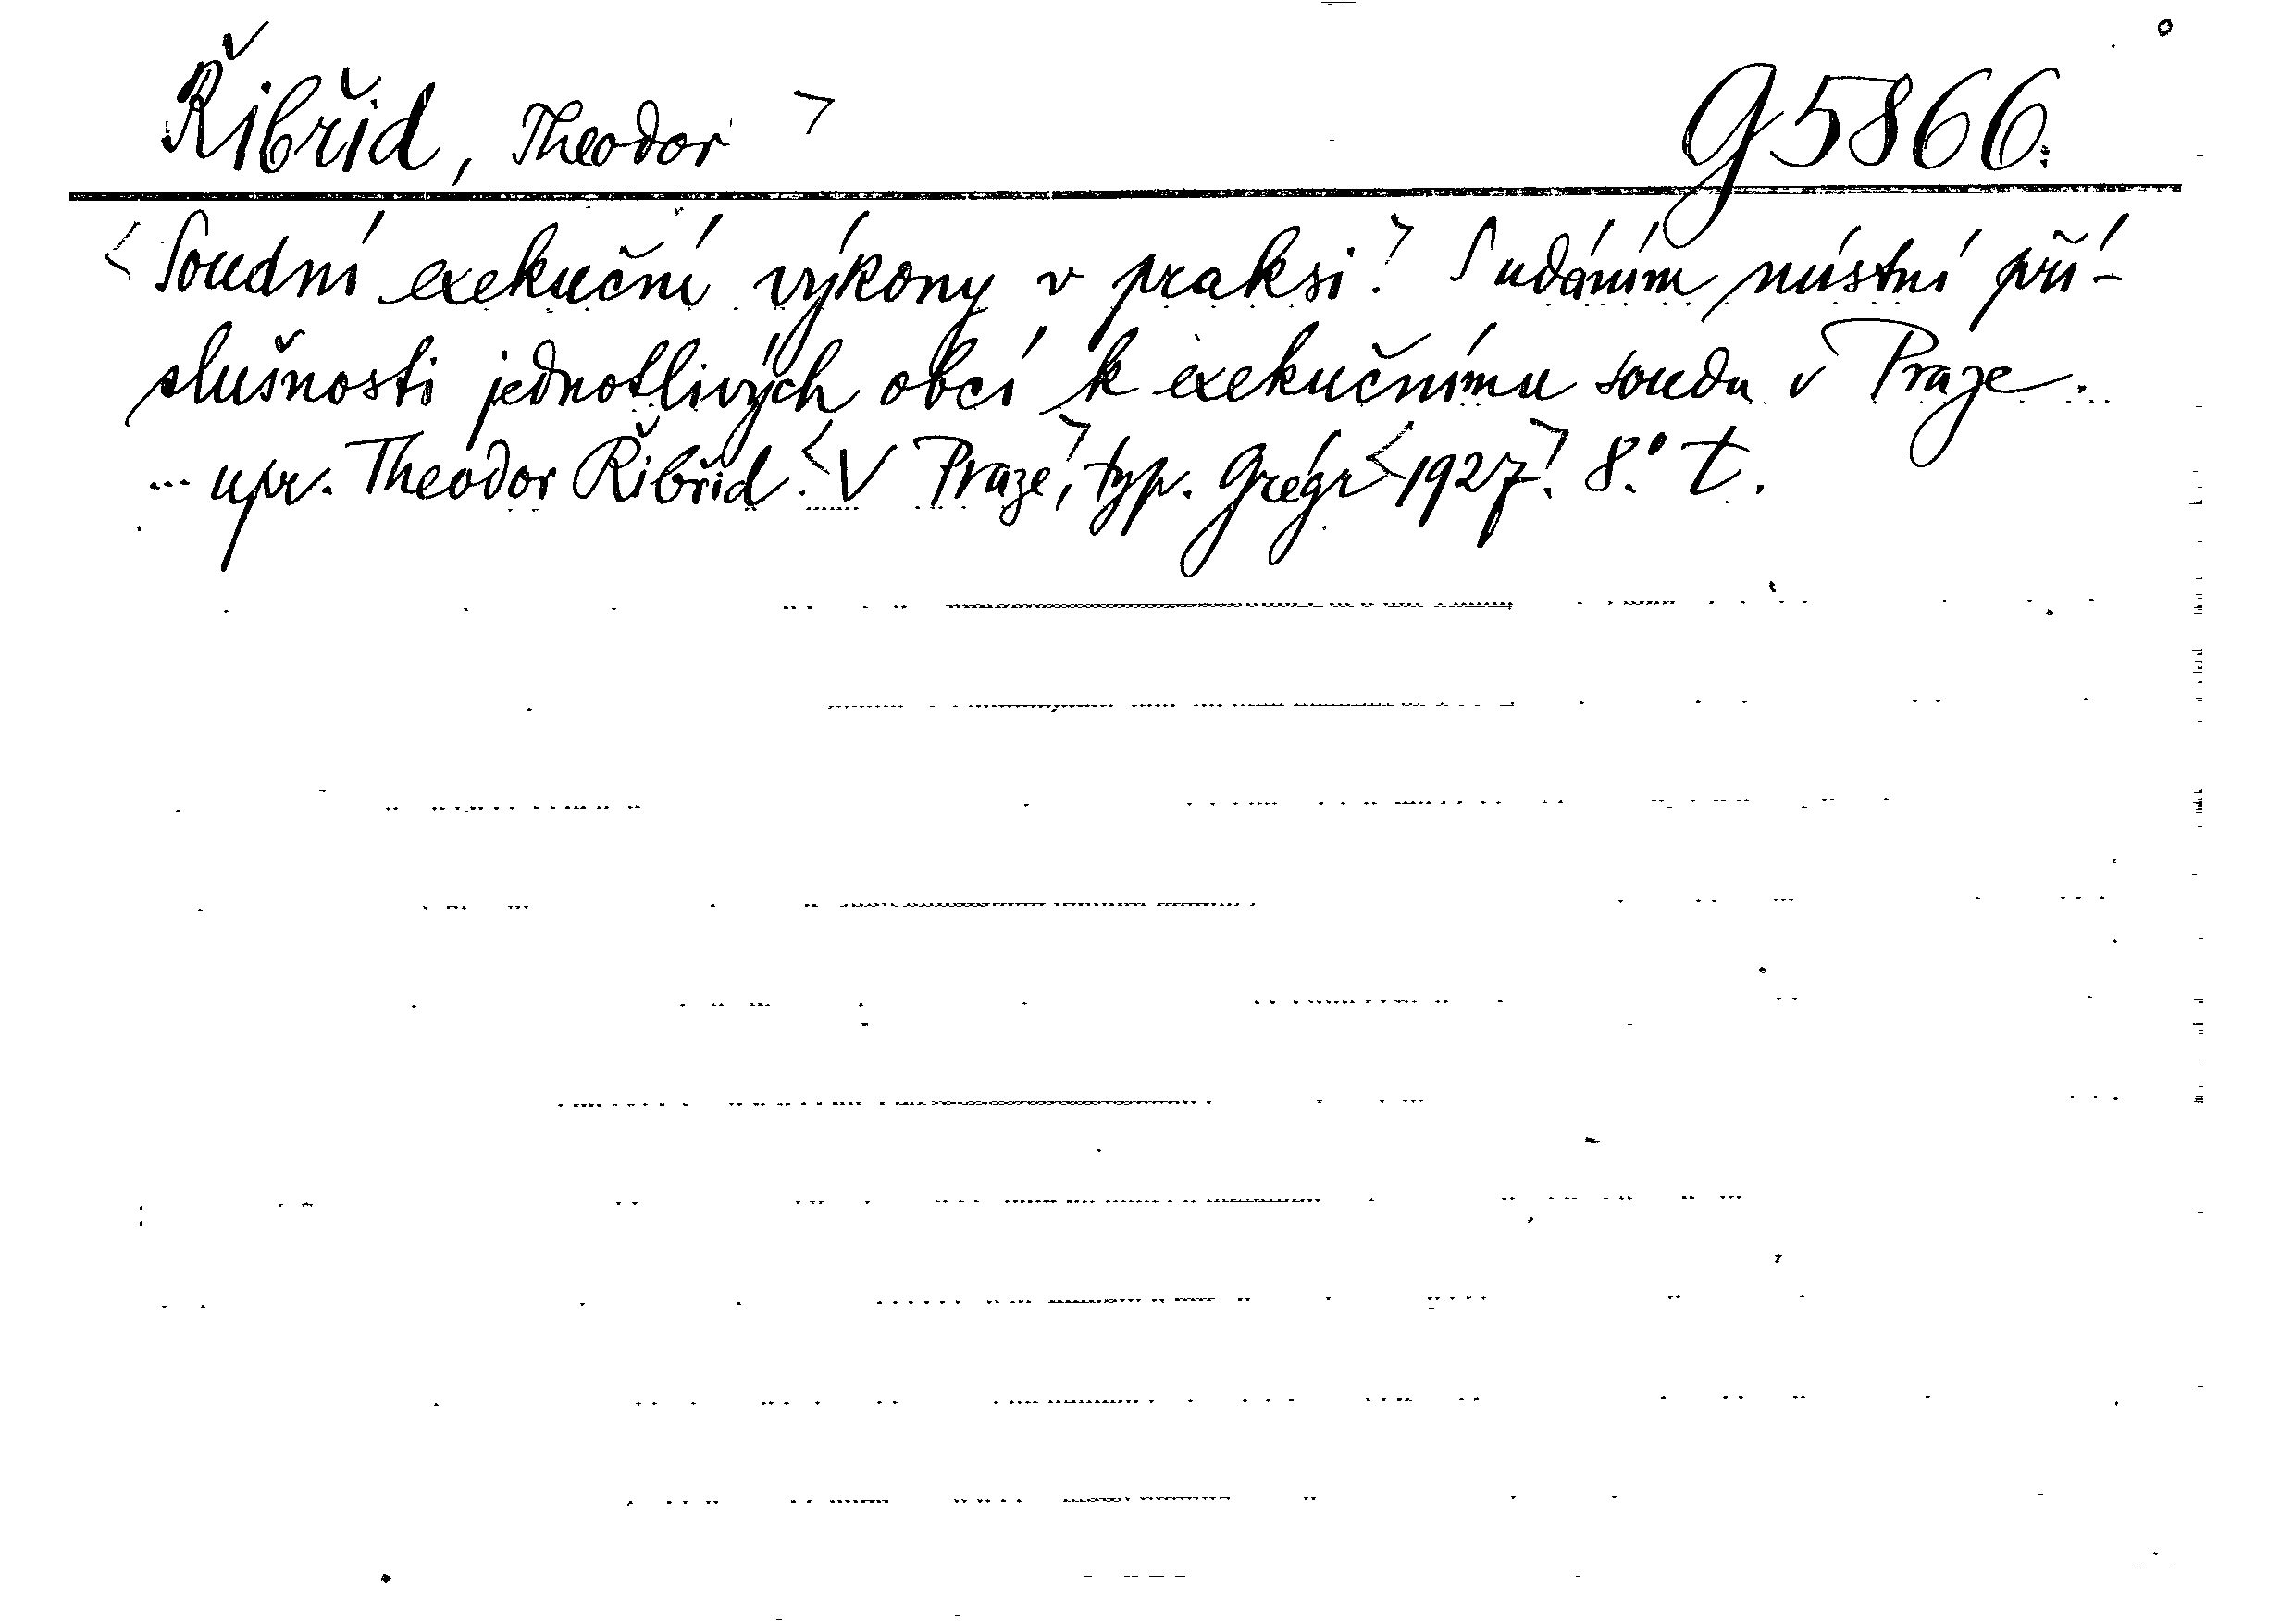 Řibřid, Theodor > G 5866.
<Soudní exekuční výkony v praksi.> S udáním místní pří-
slušnosti jednotlivých obcí k exekučnímu soudu v Praze.
... upr. Theodor Řibřid. <V Praze>, typ. Grégr <1927>. 8.° t.